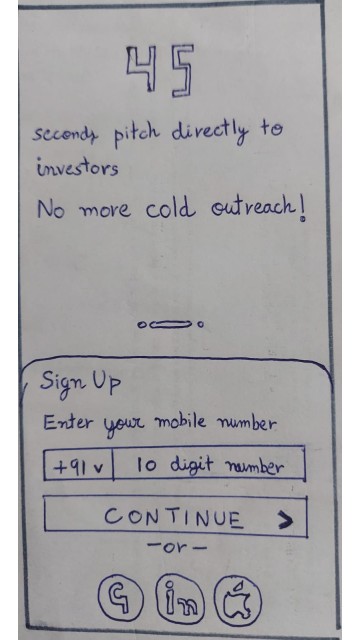 45
seconds pitch directly to
investors
No more cold outreach!
Sign Up
Enter your mobile number
+91 v 10 digit number
CONTINUE >
-or-
G in